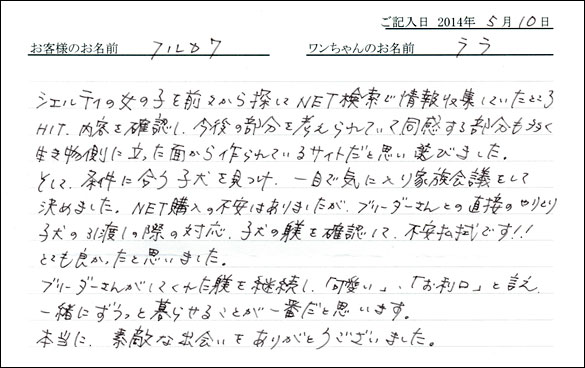 ご記入日 2014年 5月10日
お客様のお名前 フルカワ ワンちゃんのお名前 ララ
シェルティの女の子を前々から探してNET検索で情報収集していたところ
HIT. 内容を確認し、今後の部分を考えられていて同感する部分も多く
生き物側に立った面から作られているサイトだと思い選びました。
そして、条件に合う子犬を見つけ、一目で気に入り家族会議をして
決めました。NET購入の不安はありましたが、ブリーダーさんとの直接のやりとり
子犬の引渡しの際の対応、子犬の躾を確認して、不安払拭です!!
とても良かったと思いました。
ブリーダーさんがしてくれた躾を継続し、「可愛い」、「お利口」と言え、
一緒にずうっと暮らせることが一番だと思います。
本当に、素敵な出会いをありがとうございました。